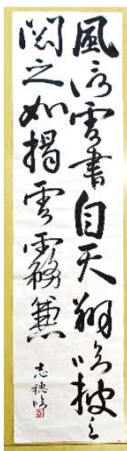 風信雲書自天翔臨披之
閱之如揭雲霧兼
志穂